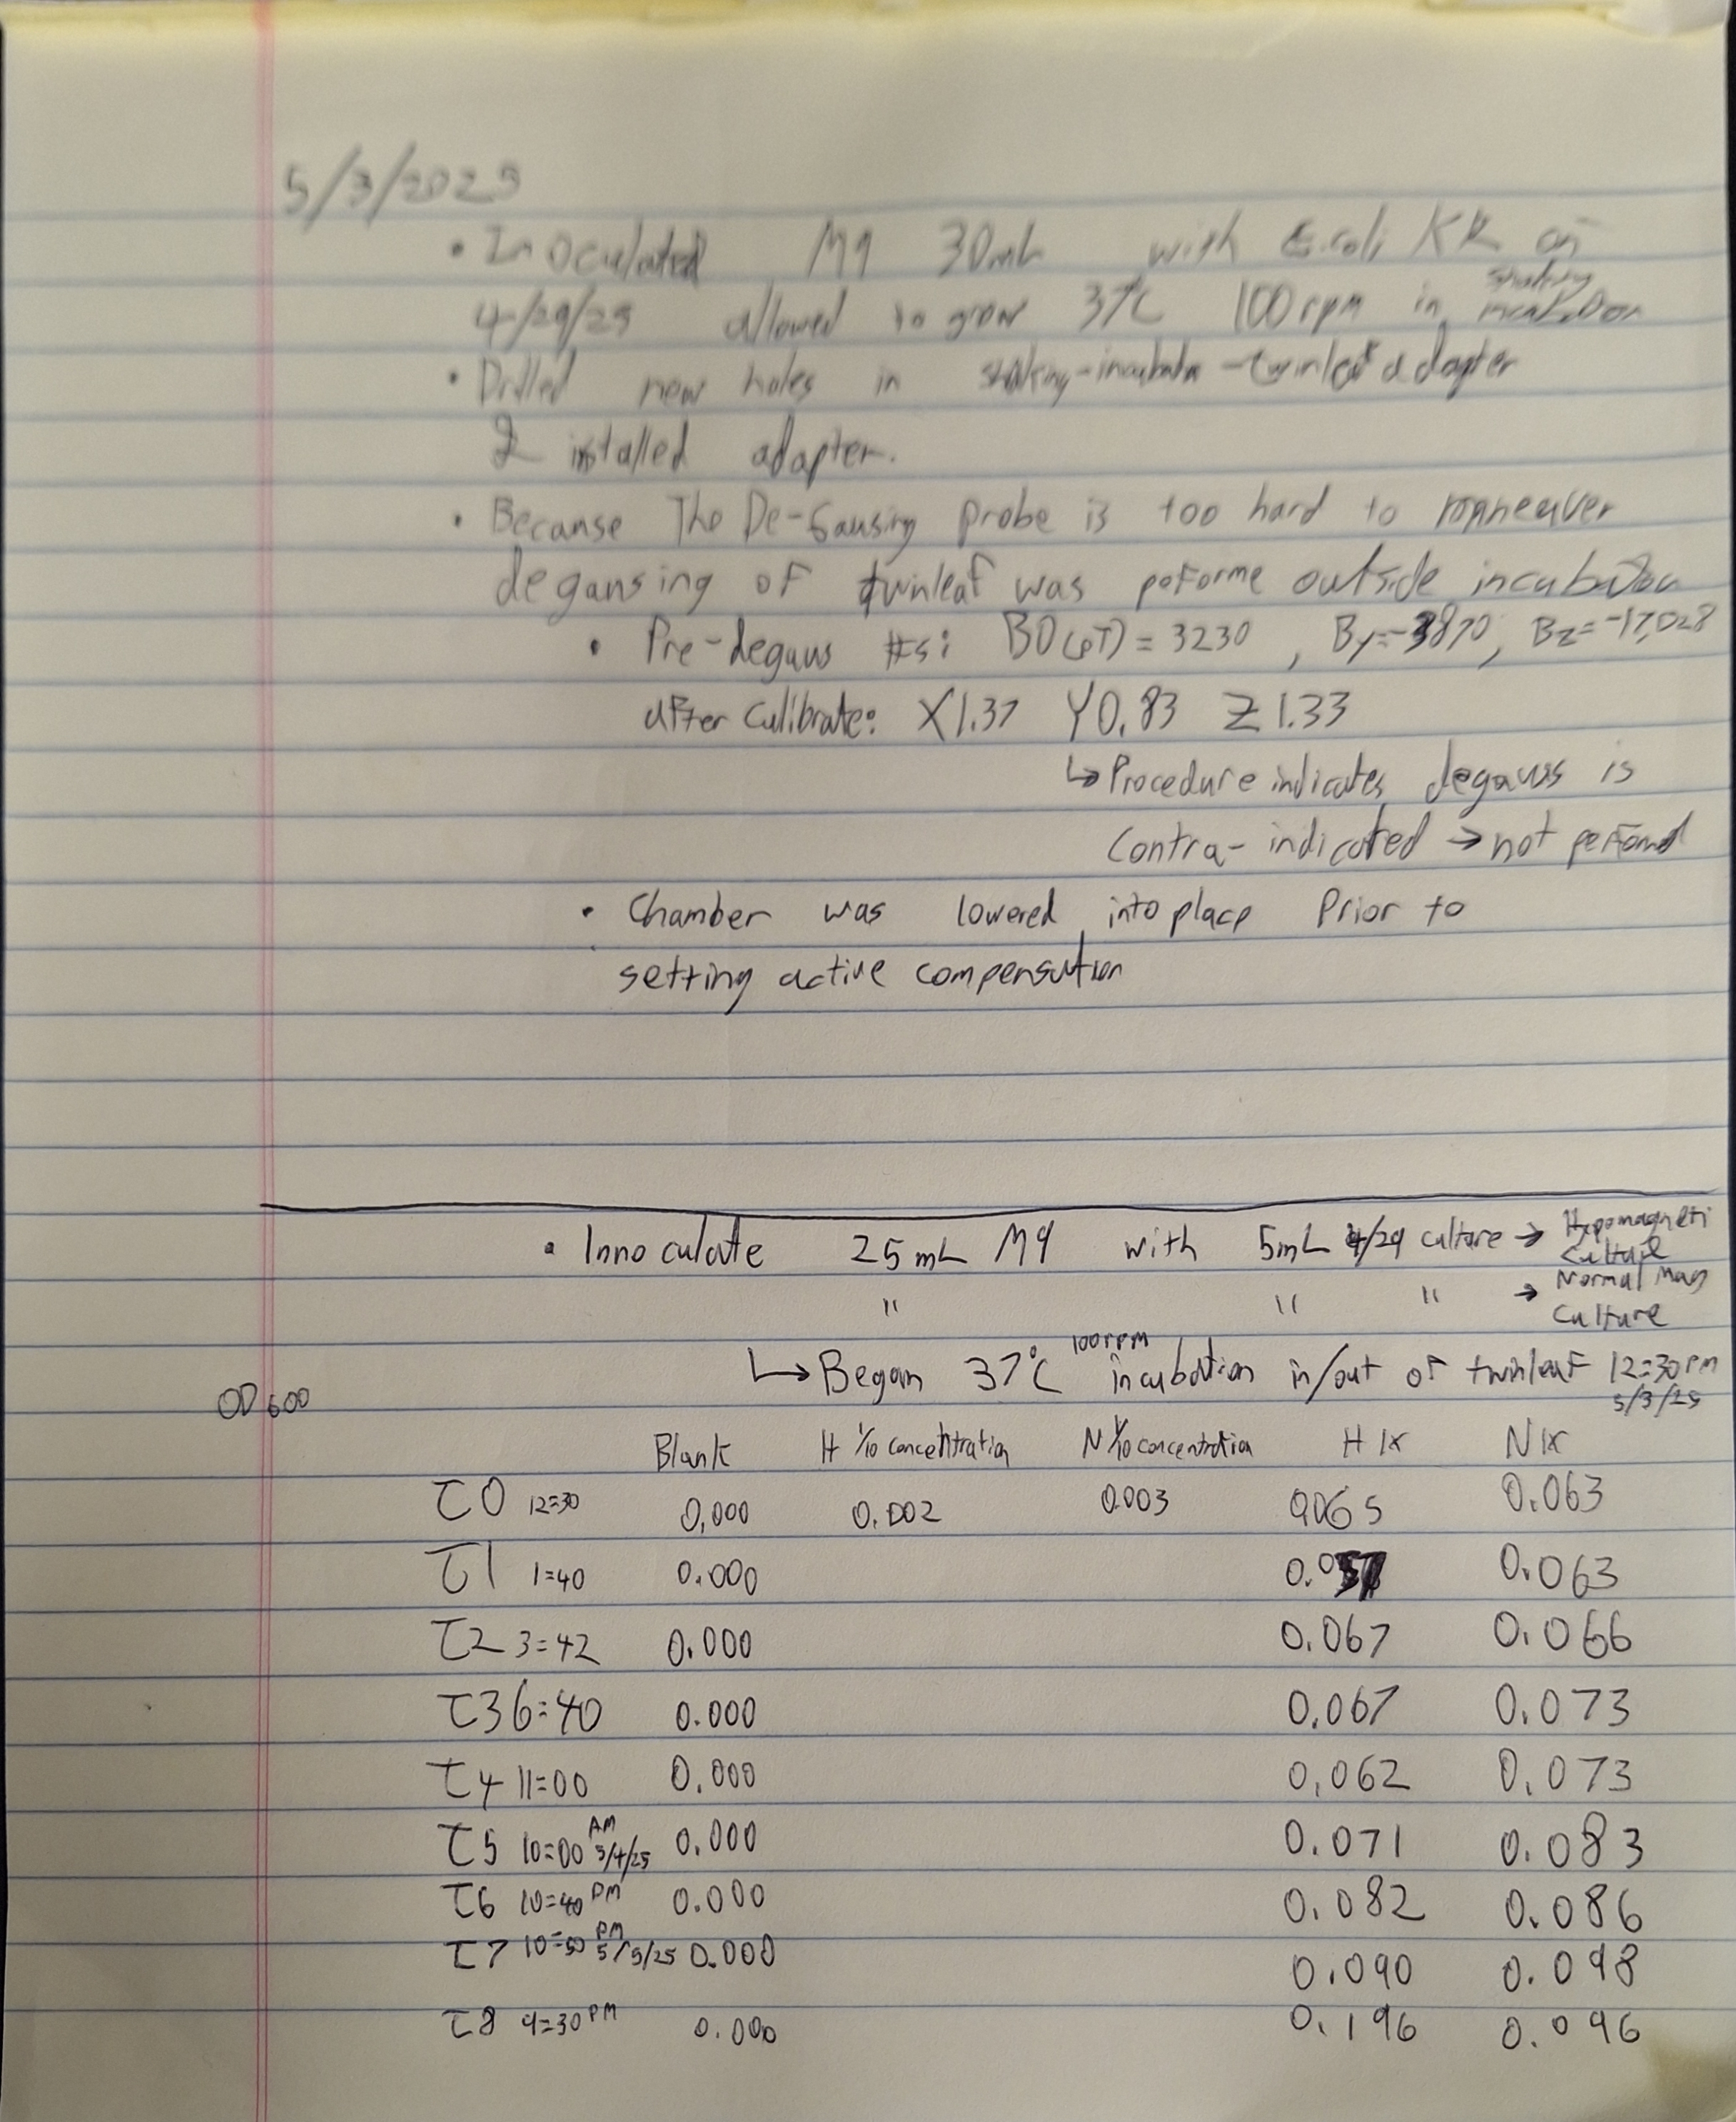 5/3/2025
• Inoculated M9 30mL with E.coli KR on
4/29/25 allowed to grow 37°C 100rpm in shaking incubation
• Drilled new holes in shaking-incubator-twinleaf adapter
& installed adapter.
• Because The De-Gausing probe is too hard to maneuver
degausing of twinleaf was peforme outside incubator
• Pre-degaus #s: B0(pT) = 3230 , By=-3870, Bz=-17,028
after Calibrate: X1.37 Y0.83 Z1.33
↳ Procedure indicates degauss is
Contra-indicated → not perfomd
• Chamber was lowered into place Prior to
setting active compensation
• Innoculate 25mL M9 with 5mL 4/29 culture → Hypomagneti Culture
" " " → Normal Mag Culture
↳ Began 37°C 100rpm incubation in/out of twinleaf 12:30PM 5/3/25
OD600
Blank H 1/10 concentration N 1/10 concentration H 1x N 1x
T0 12:30 0.000 0.002 0.003 0.065 0.063
T1 1:40 0.000 0.063
T2 3:42 0.000 0.067 0.066
T3 6:40 0.000 0.067 0.073
T4 11:00 0.000 0.062 0.073
T5 10:00 AM 5/4/25 0.000 0.071 0.083
T6 10:40 PM 0.000 0.082 0.086
T7 10:50 PM 5/5/25 0.000 0.090 0.098
T8 9:30 PM 0.000 0.196 0.096